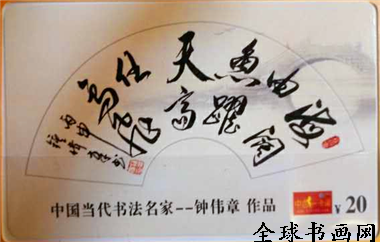 海阔由鱼躍天高任鸟飛
丙申
鍾偉章书
中国当代书法名家--钟伟章 作品
¥20
全球书画网